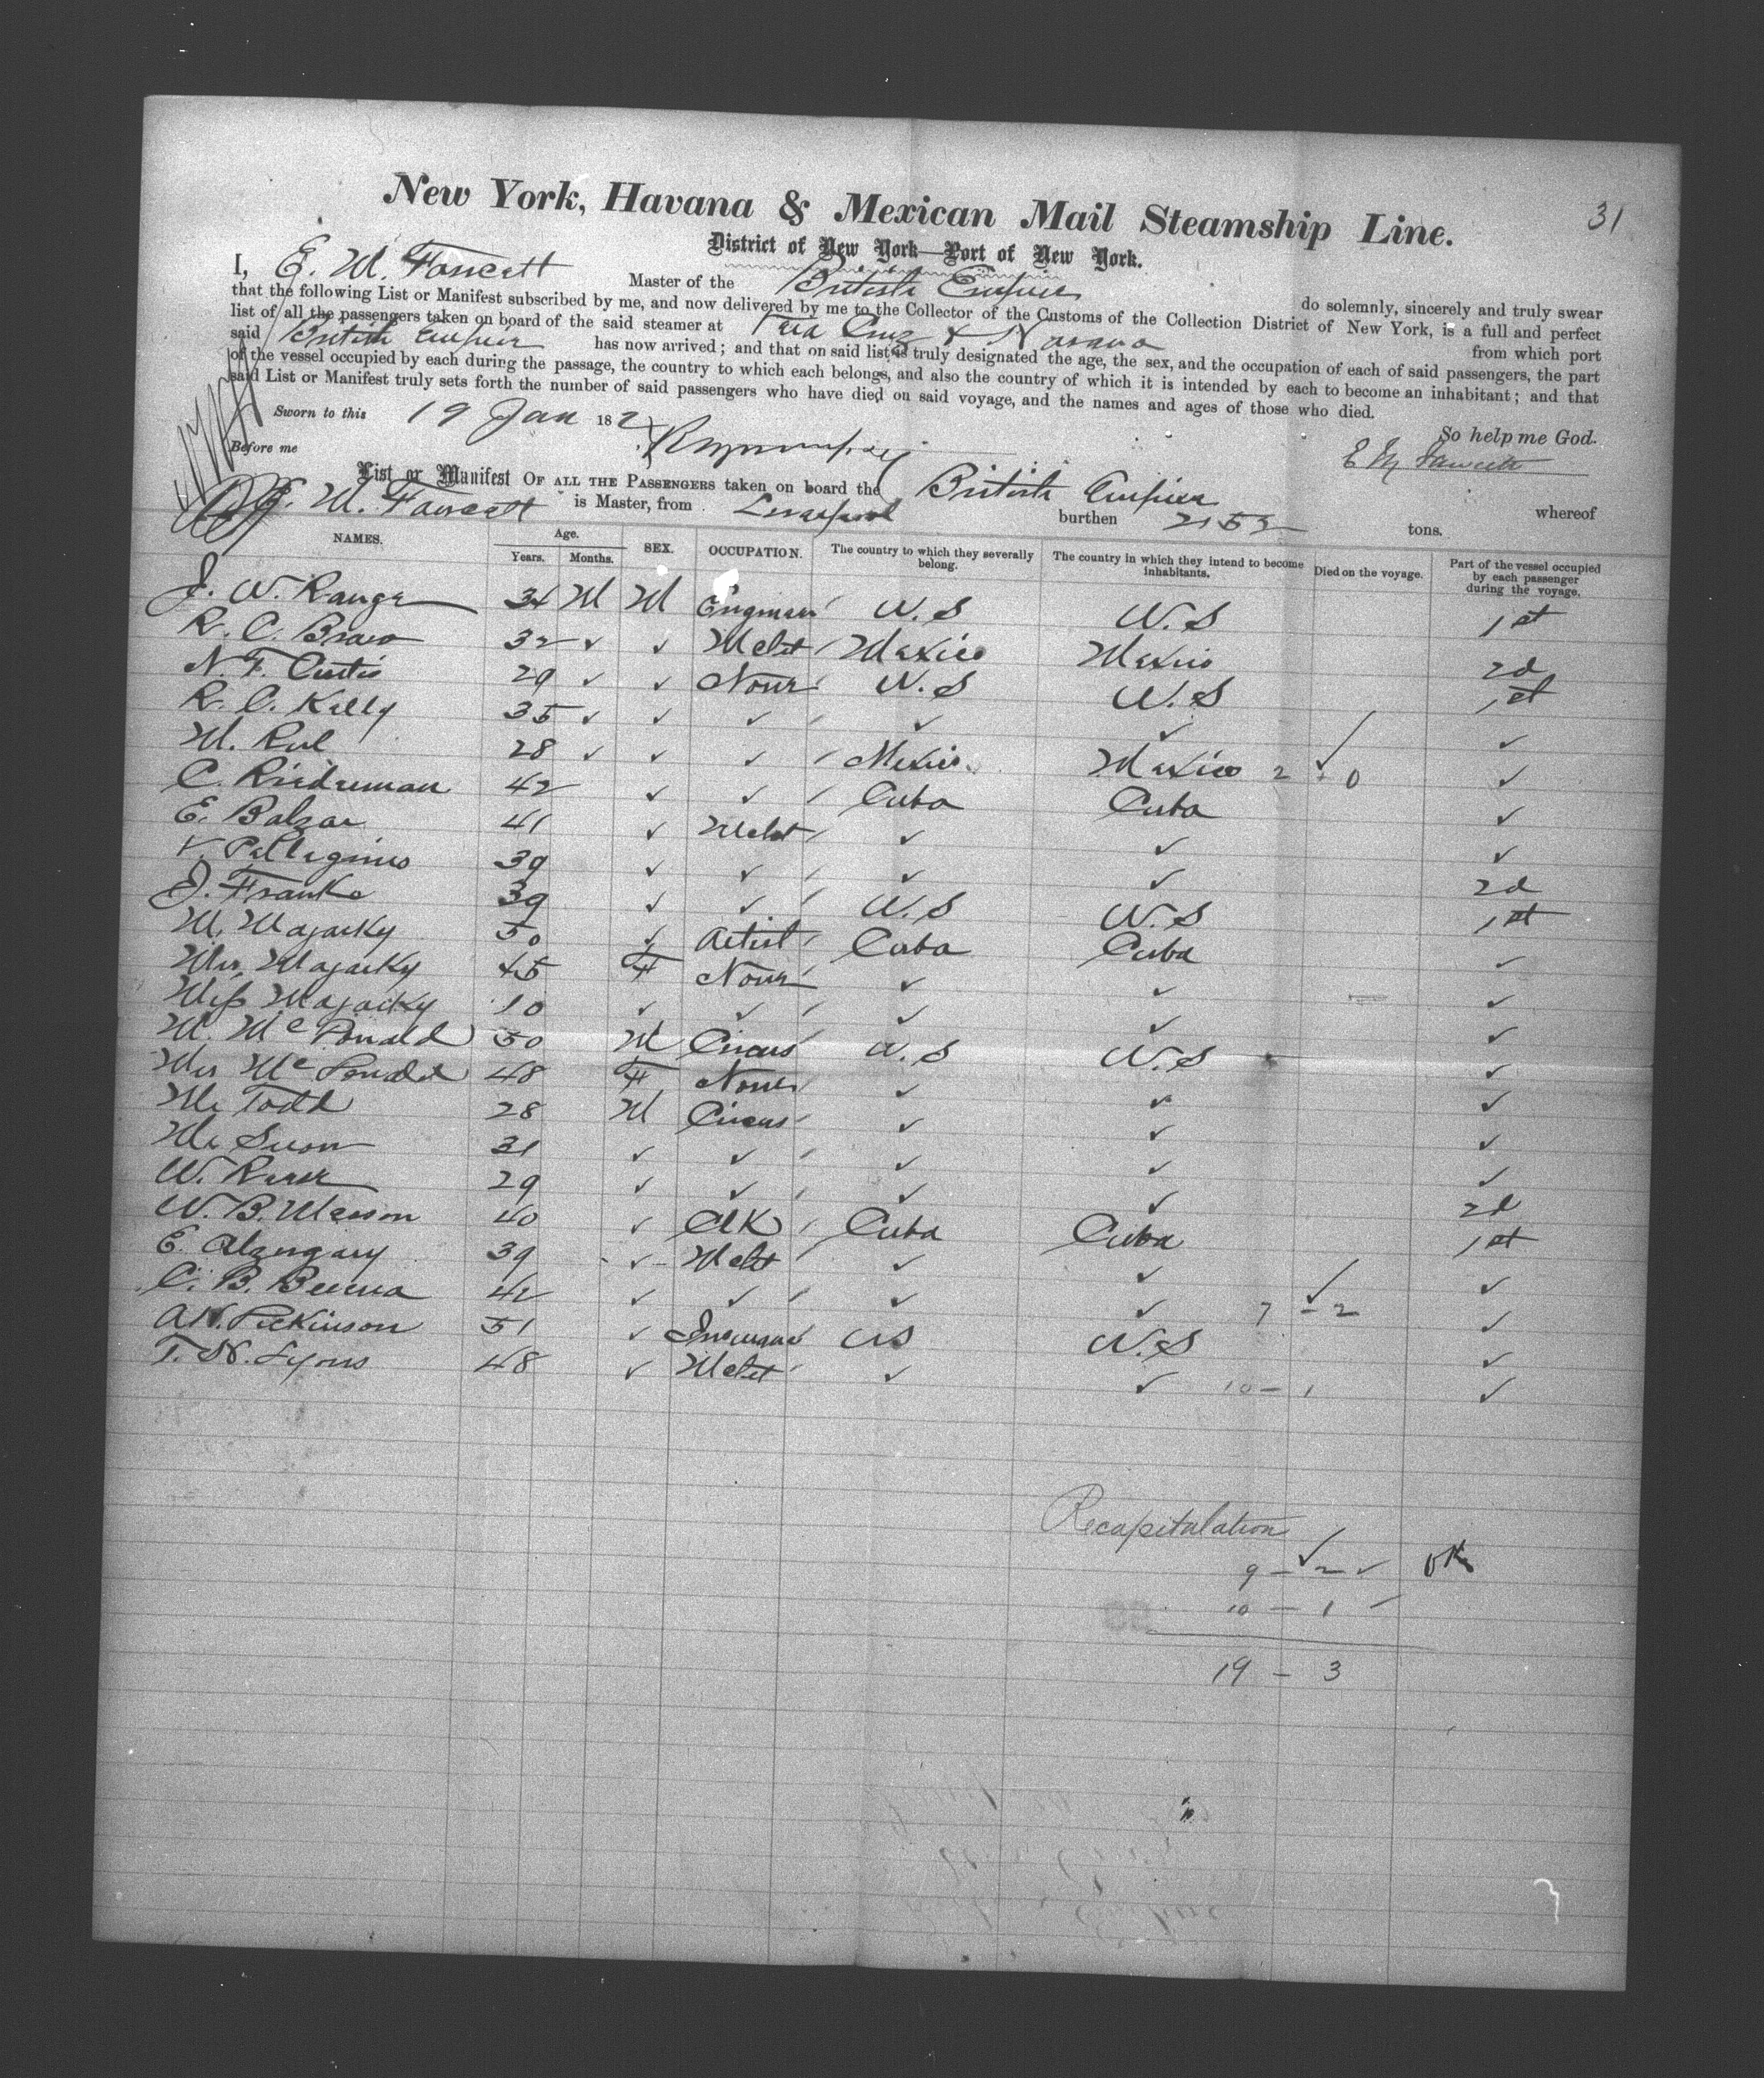 31
New York, Havana & Mexican Mail Steamship Line.
District of New York—Port of New York.
I, E. W. Fawcett Master of the British Empire do solemnly, sincerely and truly swear
that the following List or Manifest subscribed by me, and now delivered by me to the Collector of the Customs of the Collection District of New York, is a full and perfect
list of all the passengers taken on board of the said steamer at Vera Cruz & Havana from which port
said British Empire has now arrived; and that on said list is truly designated the age, the sex, and the occupation of each of said passengers, the part
of the vessel occupied by each during the passage, the country to which each belongs, and also the country of which it is intended by each to become an inhabitant; and that
said List or Manifest truly sets forth the number of said passengers who have died on said voyage, and the names and ages of those who died.
Sworn to this 19 Jan 188 So help me God.
Before me E W Fawcett
List or Manifest OF ALL THE PASSENGERS taken on board the British Empire whereof
E. W. Fawcett is Master, from Liverpool burthen tons.
NAMES. Age. Years. Months. SEX. OCCUPATION. The country to which they severally belong. The country in which they intend to become inhabitants. Died on the voyage. Part of the vessel occupied by each passenger during the voyage.
J. W. 34 M M U.S U.S 1st
R. C. Bravo 32 ✓ ✓ Mcht Mexico Mexico 2d
N. F. Curtis 29 ✓ ✓ None U.S U.S 1st
R. C. Kelly 35 ✓ ✓ ✓ ✓ ✓ ✓
M. Rul 28 ✓ ✓ ✓ Mexico Mexico 2 - 0 ✓
C. Riederman 42 ✓ ✓ Cuba Cuba ✓
E. Balzar 41 ✓ Mcht ✓ ✓ ✓
V. Pellegrins 39 ✓ ✓ ✓ ✓ 2d
J. Franke 39 ✓ ✓ U.S U.S 1st
M. Majacky 50 ✓ Artist Cuba Cuba ✓
Mrs. Majacky 45 F None ✓ ✓ ✓
Miss Majacky 10 ✓ ✓ ✓ ✓ ✓
M. McDonald 50 M Circus U.S U.S ✓
Mrs McDonald 48 F None ✓ ✓ ✓
Mr Todd 28 M Circus ✓ ✓ ✓
Mr 31 ✓ ✓ ✓ ✓ ✓
W. 29 ✓ ✓ ✓ ✓ 2d
W. B. 40 ✓ Clk Cuba Cuba 1st
E. 39 ✓ Mcht ✓ ✓ ✓
C. B. 42 ✓ ✓ ✓ ✓ 7 - 2 ✓
A. Dickinson 51 ✓ Insurance US U.S ✓
T. H. Lyons 48 ✓ Mcht ✓ ✓ 10 - 1 ✓
Recapitulation
9 - 2 ✓ OK
10 - 1
19 - 3